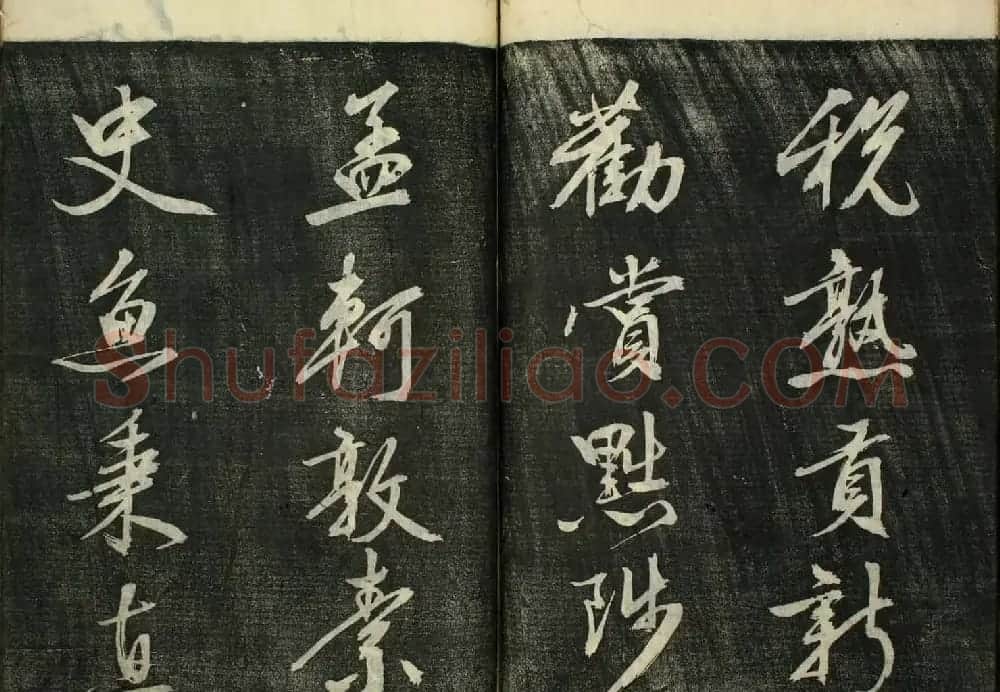 税熟貢新
勸賞黜陟
孟軻敦素
史魚秉直
Shufaziliao.COM